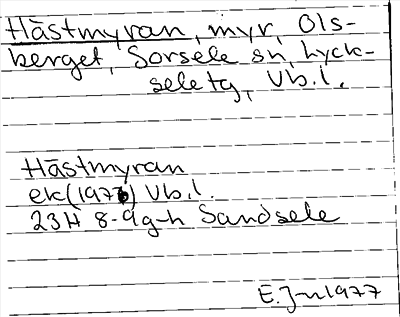 Hästmyran, myr, Ols-
berget, Sorsele sn, Lyck-
sele tg, Vb.l.
Hästmyran
ek(1976) Vb.l.
23H 8-9g-h Sandsele
E.J-n 1977